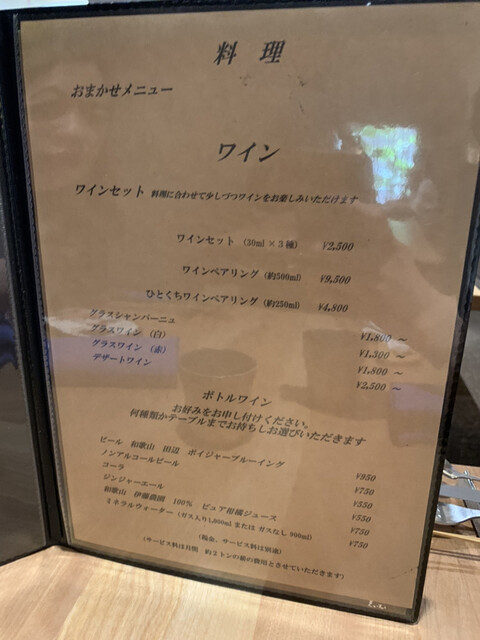 料 理
おまかせメニュー
ワイン
ワインセット 料理に合わせて少しづつワインをお楽しみいただけます
ワインセット (30ml ×3種) ¥2,500
ワインペアリング (約500ml) ¥9,500
ひとくちワインペアリング (約250ml) ¥4,800
グラスシャンパーニュ ¥1,800 ~
グラスワイン (白) ¥1,300 ~
グラスワイン (赤) ¥1,800 ~
デザートワイン ¥2,500 ~
ボトルワイン
お好みをお申し付けください。
何種類かテーブルまでお持ちしお選びいただきます
ビール 和歌山 田辺 ボイジャーブルーイング ¥950
ノンアルコールビール ¥750
コーラ ¥550
ジンジャーエール ¥550
和歌山 伊藤農園 100% ピュア柑橘ジュース ¥750
ミネラルウォーター (ガス入り1,000ml または ガスなし 900ml) ¥750
(税金、サービス料は別途)
(サービス料は月間 約2トンの薪の費用とさせていただきます)